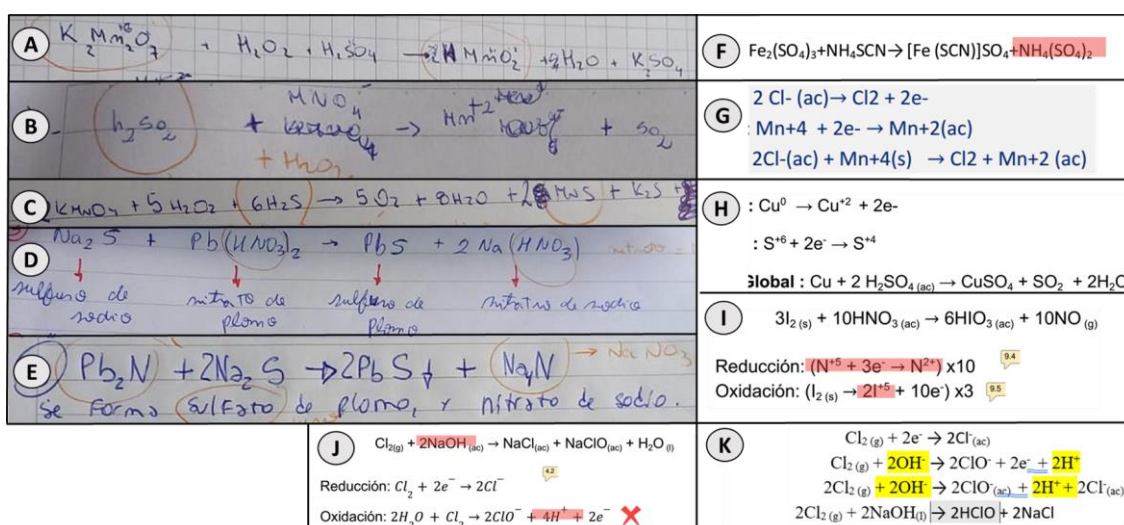 A
K₂Mn₂O₇ + H₂O₂ + H₂SO₄ → 2HMnO₂ + 2H₂O + K₂SO₄
B
h₂SO₂ + MNO₄ → Mn⁺² + SO₂
+ H₂O₂
C
2KMnO₄ + 5H₂O₂ + 6H₂S → 5O₂ + 8H₂O + 2MnS + K₂S +
D
Na₂S + Pb(HNO₃)₂ → PbS + 2Na(HNO₃)
sulfuro de sodio
nitrato de plomo
sulfuro de plomo
nitrato de sodio
E
Pb₂N + 2Na₂S → 2PbS↓ + Na₄N → NaNO₃
Se forma sulfato de plomo, y nitrato de sodio.
F
Fe₂(SO₄)₃+NH₄SCN→ [Fe (SCN)]SO₄+NH₄(SO₄)₂
G
2 Cl- (ac)→ Cl2 + 2e-
: Mn+4 + 2e- → Mn+2(ac)
2Cl-(ac) + Mn+4(s) → Cl2 + Mn+2 (ac)
H
: Cu⁰ → Cu⁺² + 2e-
: S⁺⁶ + 2e⁻ → S⁺⁴
Global : Cu + 2 H₂SO₄ (ac) → CuSO₄ + SO₂ + 2H₂O
I
3I₂ (s) + 10HNO₃ (ac) → 6HIO₃ (ac) + 10NO (g)
Reducción: (N⁺⁵ + 3e⁻ → N²⁺) x10
9.4
Oxidación: (I₂ (s) → 2I⁺⁵ + 10e⁻) x3
9.5
J
Cl₂(g) + 2NaOH (ac) → NaCl(ac) + NaClO(ac) + H₂O (l)
4.2
Reducción: Cl₂ + 2e⁻ → 2Cl⁻
Oxidación: 2H₂O + Cl₂ → 2ClO⁻ + 4H⁺ + 2e⁻
K
Cl₂ (g) + 2e⁻ → 2Cl⁻(ac)
Cl₂ (g) + 2OH⁻ → 2ClO⁻ + 2e⁻ + 2H⁺
2Cl₂ (g) + 2OH⁻ → 2ClO⁻(ac) + 2H⁺ + 2Cl⁻(ac)
2Cl₂ (g) + 2NaOH(l) → 2HClO + 2NaCl